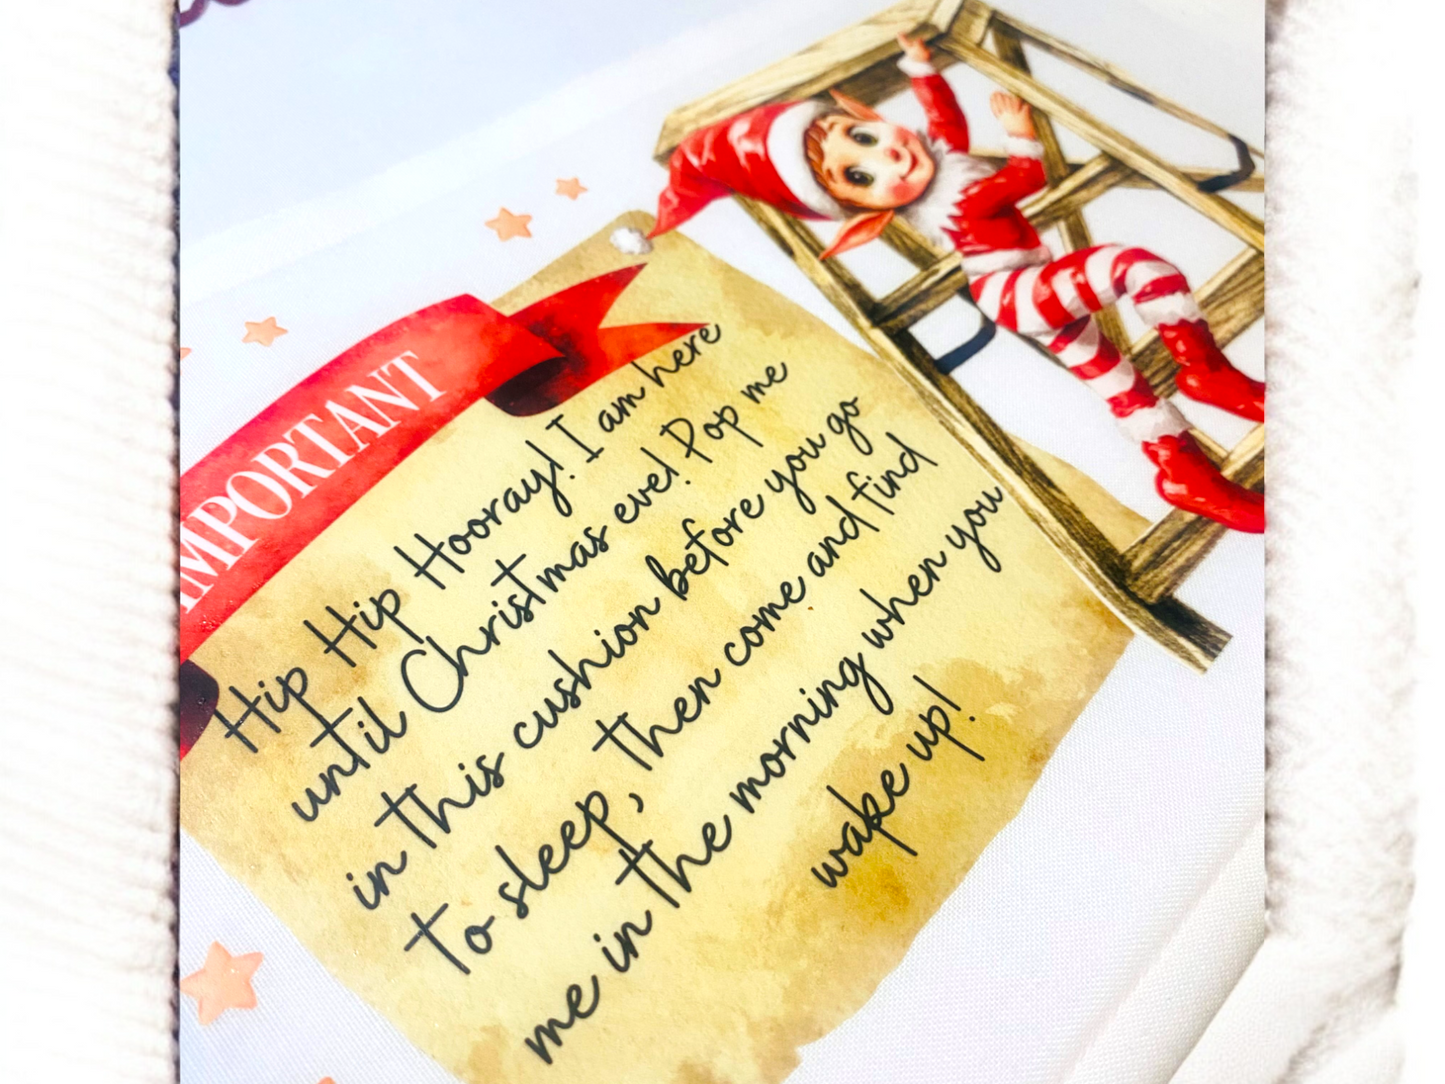 IMPORTANT
Hip Hip Hooray! I am here
until Christmas eve! Pop me
in this cushion before you go
to sleep, then come and find
me in the morning when you
wake up!